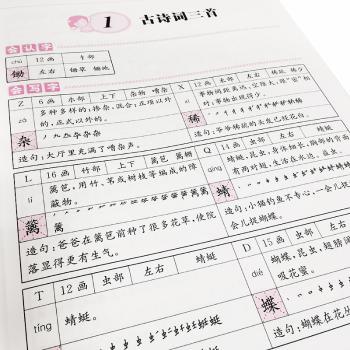 1 古诗词三首
会认字
chú 12画 钅部
锄 左右 锄草 锄地
会写字
Z 6画 木部 上下 杂物 嘈杂
zá 多种多样的;掺杂,混合;正项以外
的,正式以外的。
杂
造句:大厅里充满了嘈杂声。
X 12画 禾部 左右 稀先 稀少
xī 事物
对;事物出现得少。
稀
造句:爷爷稀疏的头发已经花白。
L 16画 竹部 上下 篱笆 篱栅
lí 篱笆,用竹、苇或树枝等编成的障
蔽物。
篱
造句:爸爸在篱笆前种了很多花草,使院
落显得更有生气。
Q 14画 虫部
qīng 蜻蜓,昆虫,身体细长,胸部的背面
有两对翅,生活在水边。益虫。
蜻
造句:小猫钓鱼不专心,一会儿
会儿捉蝴蝶。
T 12画 虫部 左右 蜻蜓
tíng 蜻蜓。
D 15画 虫部 左右
dié 蝴蝶,昆虫,翅膀阔
吸花蜜。
蝶
造句:蝴蝶在花丛